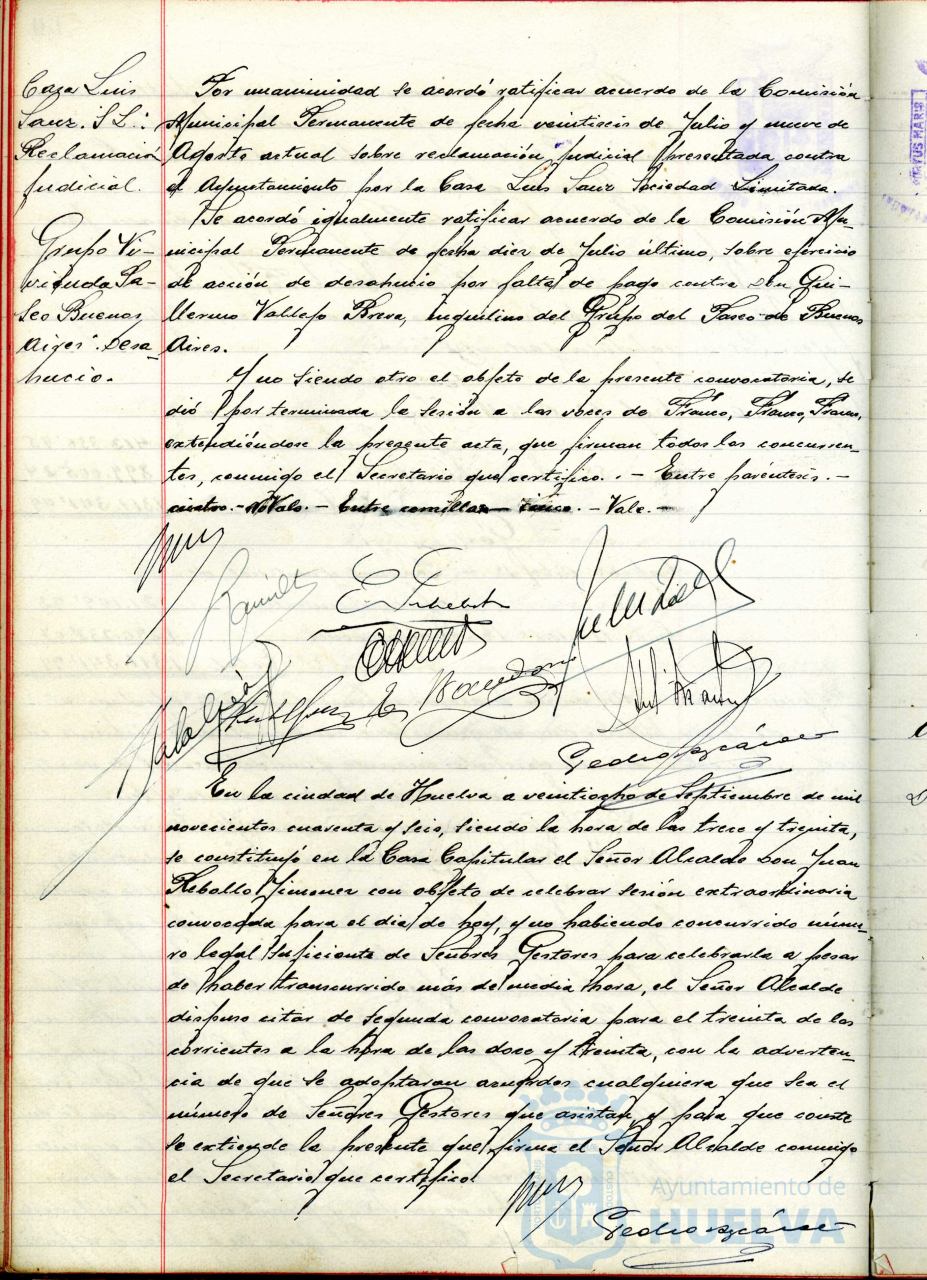 Casa Luis
Sanz. S.L.:
Reclamación
judicial.
Por unanimidad se acordó ratificar acuerdo de la Comisión
Municipal Permanente de fecha veintiseis de Julio y nueve de
Agosto actual sobre reclamación judicial presentada contra
el Ayuntamiento por la Casa Luis Sanz Sociedad Limitada.
Grupo Vi-
vienda Pa-
seo Buenos
Aires. Desa-
hucio.
Se acordó igualmente ratificar acuerdo de la Comisión Mu-
nicipal Permanente de fecha diez de Julio último, sobre ejercicio
de acción de desahucio por falta de pago contra Don Gui-
llermo Vallejo Breva, inquilino del Grupo del Paseo de Buenos
Aires.
Y no siendo otro el objeto de la presente convocatoria, se
dió por terminada la sesión a las voces de Franco, Franco, Franco,
extendiéndose la presente acta, que firman todos los concurren-
tes, conmigo el Secretario que certifico. - Entre paréntesis. -
cuatro. - No Vale. - Entre comillas - cinco. - Vale. -
En la ciudad de Huelva a veintiocho de Septiembre de mil
novecientos cuarenta y seis, siendo la hora de las trece y treinta,
se constituyó en la Casa Capitular el Señor Alcalde Don Juan
Rebollo Jimenez con objeto de celebrar sesión extraordinaria
convocada para el dia de hoy, y no habiendo concurrido núme-
ro legal suficiente de Señores Gestores para celebrarla a pesar
de haber transcurrido más de media hora, el Señor Alcalde
dispuso citar de segunda convocatoria para el treinta de los
corrientes a la hora de las doce y treinta, con la adverten-
cia de que se adoptaran acuerdos cualquiera que sea el
número de Señores Gestores que asistan, y para que conste
se extiende la presente que firma el Señor Alcalde conmigo
el Secretario que certifico.
Ayuntamiento de
HUELVA